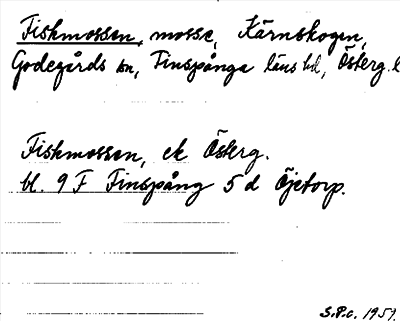 Fiskmossen, mosse, Kärnskogen,
Godegårds sn, Finspånga läns hd, Österg. l
Fiskmossen, ek Österg.
bl. 9 F Finspång 5 d Öjetorp.
S.P.c. 1951.